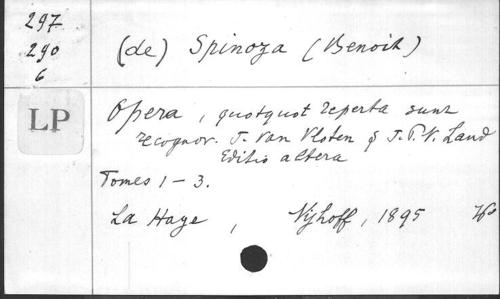 297
290
6
(de) Spinoza (Benoit)
LP
Opera, quotquot reperta sunt
recognov. J. Van Vloten & J.P.N. Land
Editio altera
Tomes 1-3.
La Haye, Nijhoff, 1895